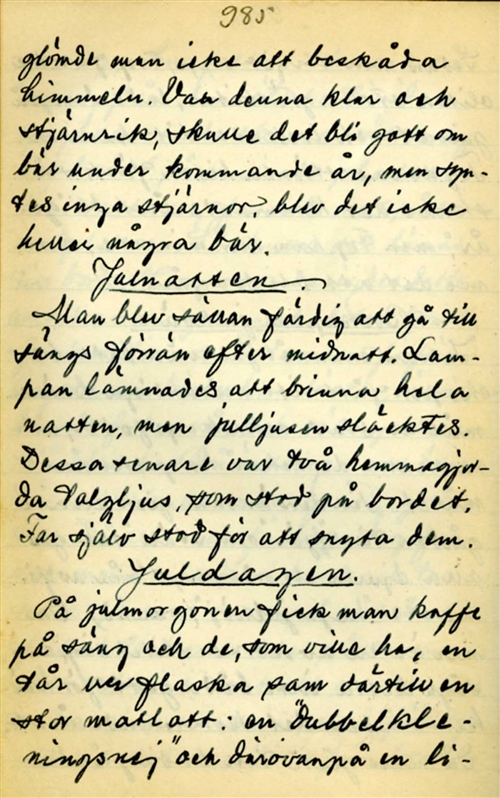 985
glömde man icke att beskåda
himmeln. Var denna klar och
stjärnrik, skulle det bli gott om
bär under kommande år, men syn-
tes inga stjärnor, blev det icke
heller några bär.
Julnatten.
Man blev sällan färdig att gå till
sängs förrän efter midnatt. Lam-
pan lämnades att brinna hela
natten, men julljusen släcktes.
Dessa senare var två hemmagjor-
da talgljus, som stod på bordet.
Far själv stod för att snyta dem.
Juldagen.
På julmorgonen fick man kaffe
på säng och de, som ville ha, en
tår ur flaska sam därtill en
stor matlatt: en "dubbelkle-
ningsnej" och därovanpå en li-